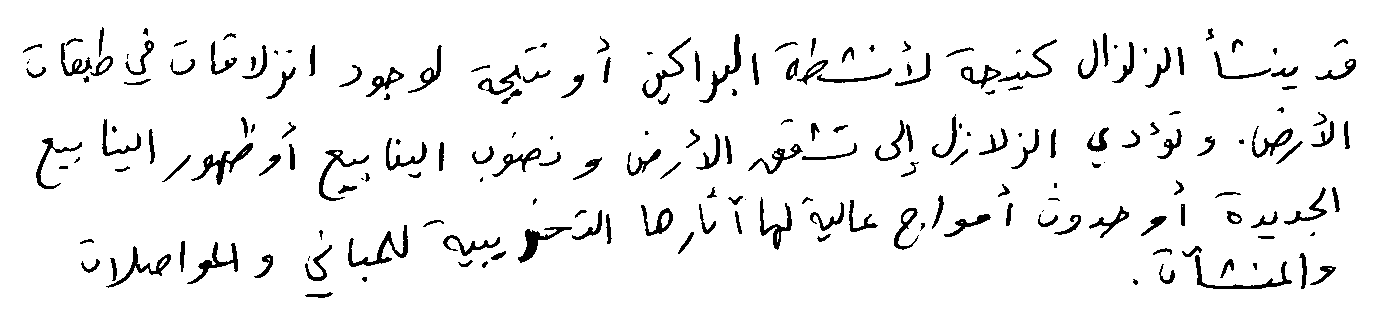 قد ينشأ الزلزال كنتيجة لأنشطة البراكين أو نتيجة لوجود انزلاقات في طبقات
الأرض. وتؤدي الزلازل إلى تشقق الأرض ونضوب الينابيع أو ظهور الينابيع
الجديدة أو حدوث أمواج عالية لها آثارها التخريبية للمباني والمواصلات
والمنشآت.